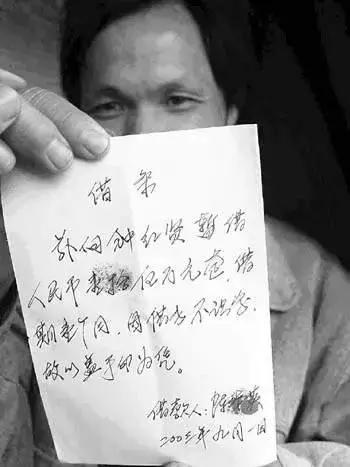 借条
兹向钟红贤暂借
人民币叁拾伍万元逾，借
期壹个月，因借方不识字，
故以盖手印为凭。
借款人：陈
2003年九月一日